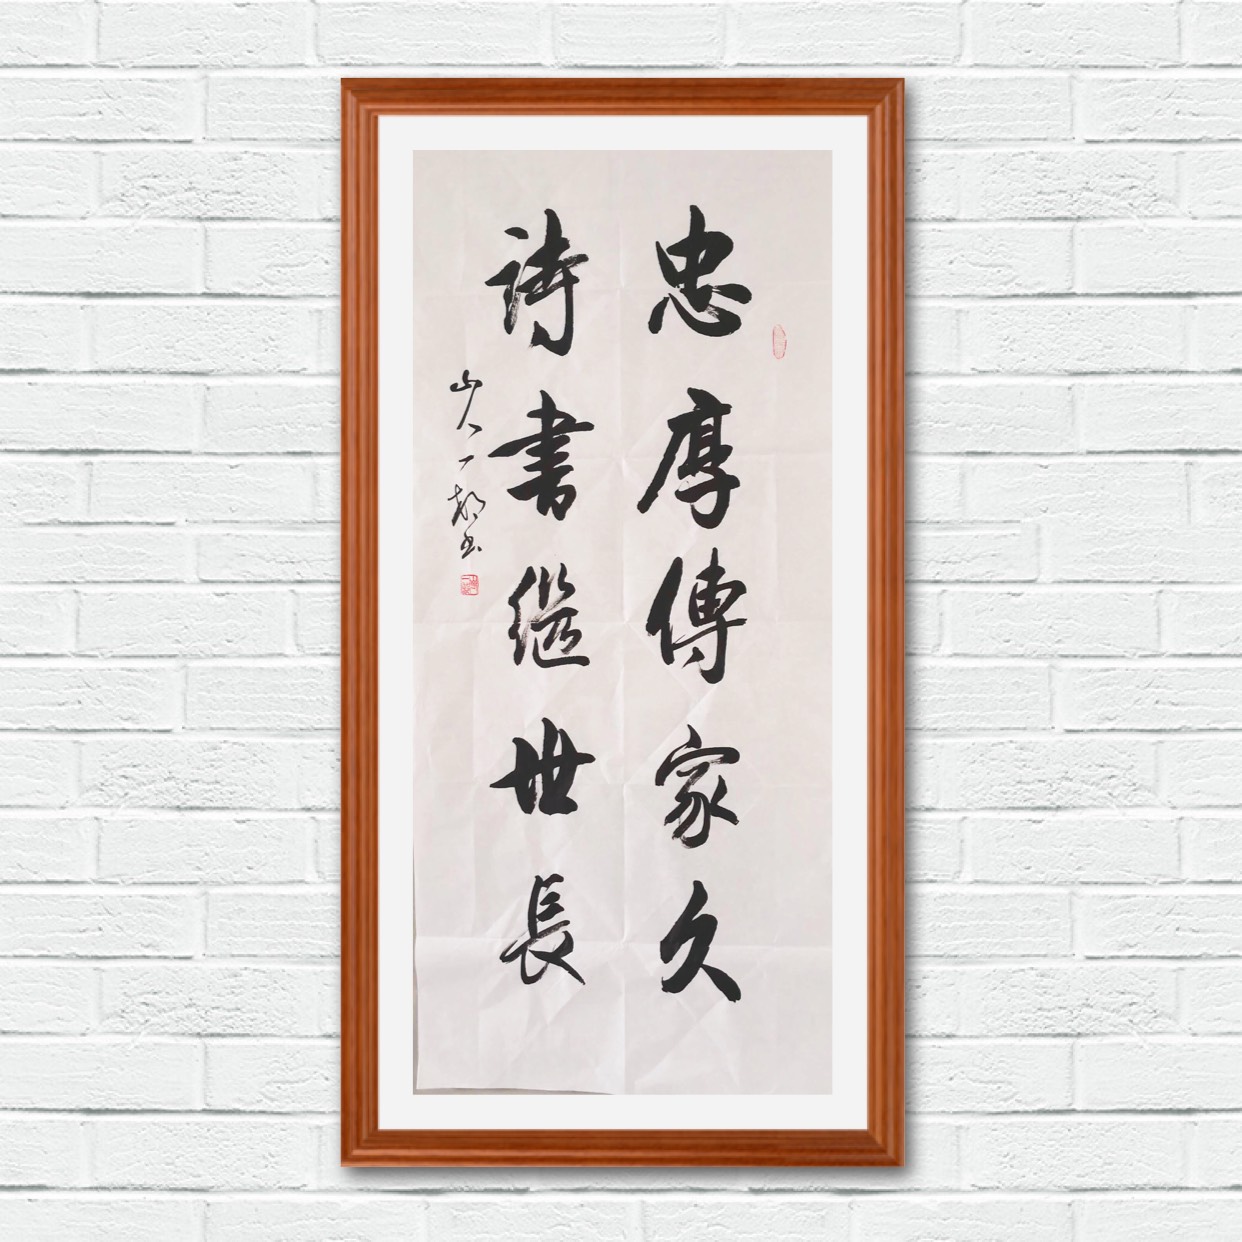 忠厚傳家久
詩書继世長
山人一郝书